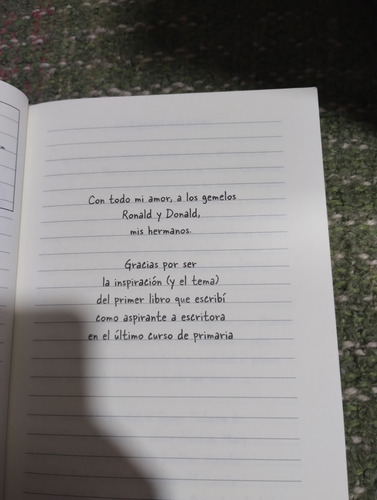 Con todo mi amor, a los gemelos
Ronald y Donald,
mis hermanos.
Gracias por ser
la inspiración (y el tema)
del primer libro que escribí
como aspirante a escritora
en el último curso de primaria